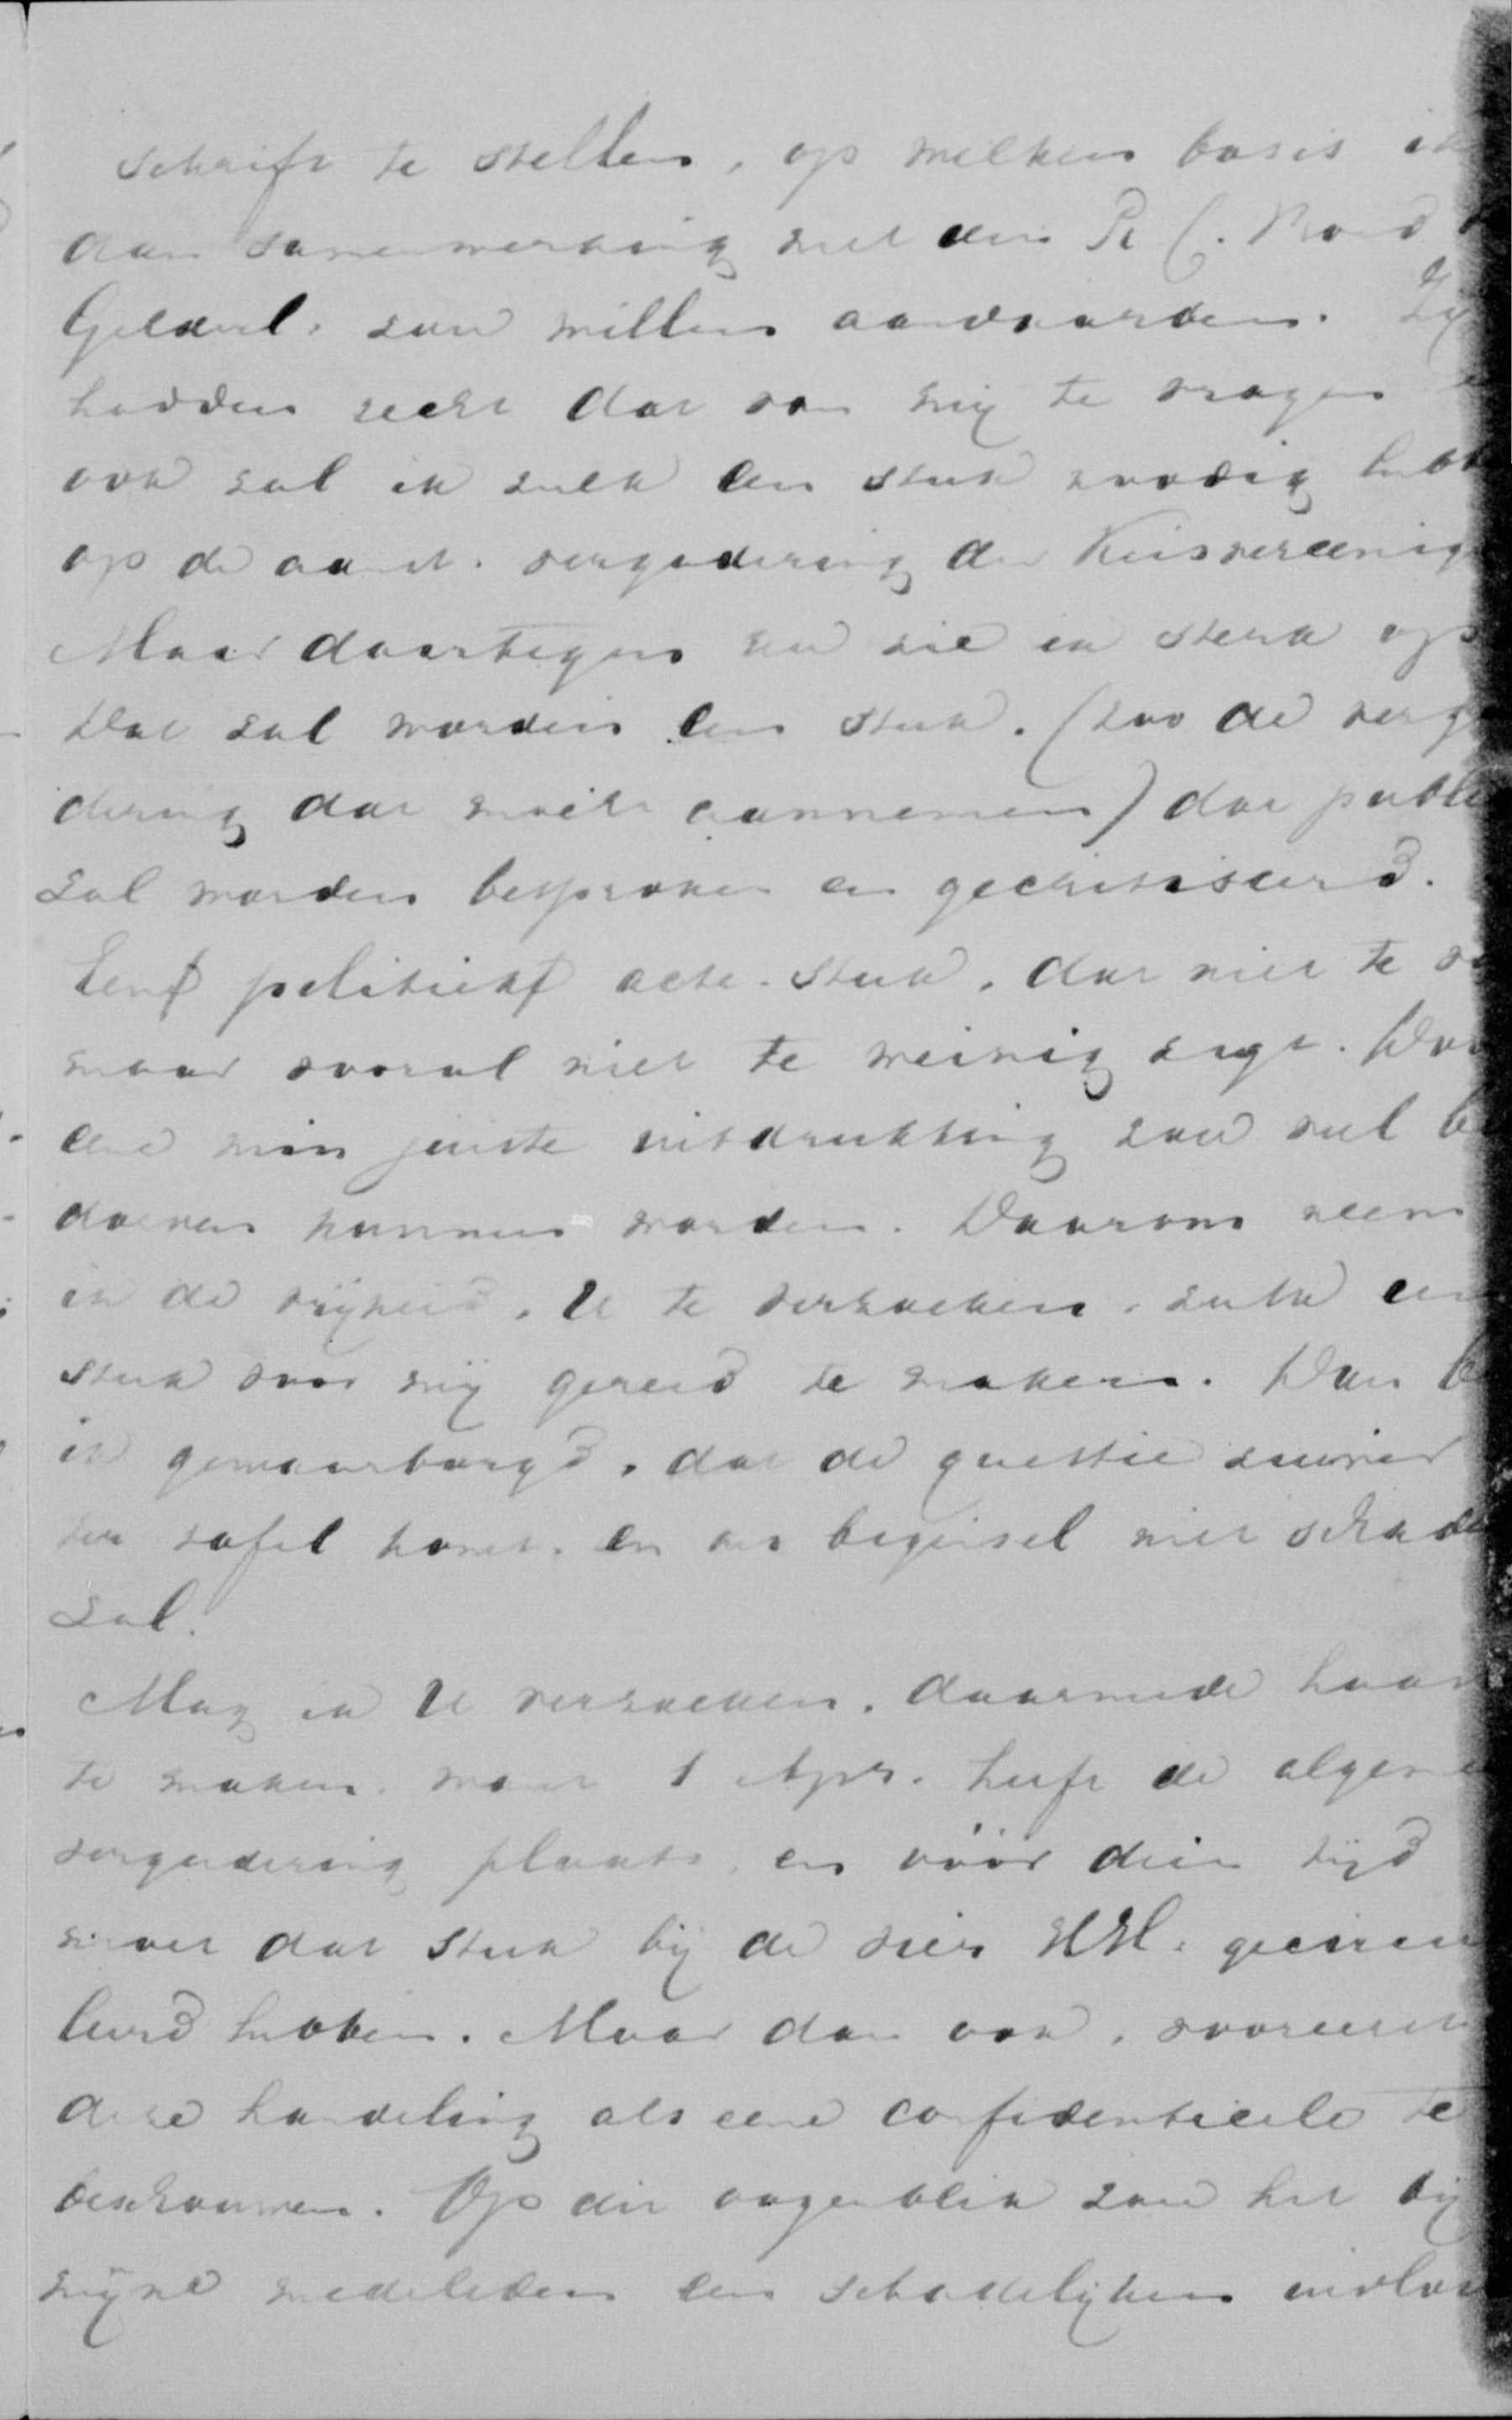 schrift te stellen, op welken basis ik
dan samenwerking met den R C. Bond
Gelderl. zou willen aanvaarden. Zij
hadden recht dat van mij te vragen
ook zal ik zulk een stuk noodig hebb
op de aanst. vergadering der Kiesvereenig
Maar daartegen nu zie ik sterk op
Dat zal worden een stuk. (zoo de verga
dering dat mocht aannemen) dat publi
zal worden besproken en gecritiseerd.
Een politiek acte-stuk, dat niet te v
maar vooral niet te weinig zegt. Door
eene min juiste uitdrukking zou veel be
dorven kunnen worden. Daarom neem
ik de vrijheid, U te verzoeken, zulk een
stuk voor mij gereed te maken. Dan b
ik gewaarborgd, dat de questie zuiver
ter tafel komt. en het beginsel niet schade
zal.
Mag ik U verzoeken, daarmede haast
te maken. want 1 Apr. heeft de algeme
vergadering plaats, en vóór dien tijd
moet dat stuk bij de vier HH. gecircu
leerd hebben. Maar dan ook, vooreerst
deze handeling als eene confidentieele te
beschouwen. Op dit oogenblik zou het bij
mijne medeleden een schadelijken invloed